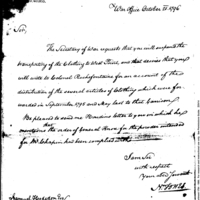 War Office October 25 1796
Sir,
The Secretary of War requests that you will suspend the
transporting of the Clothing to West Point, and desires that you
will write to Colonel Rochefontaine for an account of the
distribution of the several articles of Clothing which were for-
warded in September 1795 and May last to that Garrison.
Be pleased to send me Memdms letter to you on which he
mentions the order of General for the powder intended
for Mr Chapin has been complied with
I am Sir
with respect
your obed Servant
Samuel Hodgdon Esqr